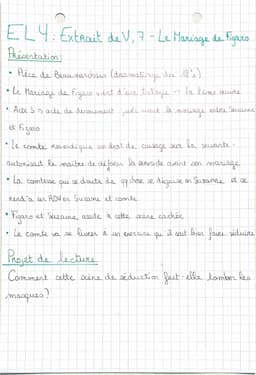 EL4 : Extrait de V, 7 - Le Mariage de Figaro
Présentation :
• Pièce de Beaumarchais (dramaturge du 18°s)
• Le Mariage de Figaro vient d'une trilogie → la 2ème œuvre
• Acte 5 → acte de dénouement, juste avant le mariage entre Suzanne
et Figaro
• Le comte revendique un droit de cuissage sur la servante -
autorisait le maître de déflorer la servante avant son mariage
• La comtesse qui se doute de qq chose se déguise en Suzanne et se
rend à un RDV Suzanne et comte.
• Figaro et Suzanne, assiste à cette scène cachée
• Le comte va se livrer à un exercice qu'il sait bien faire : séduire
Projet de lecture
Comment cette scène de séduction fait-elle tomber les
masques ?